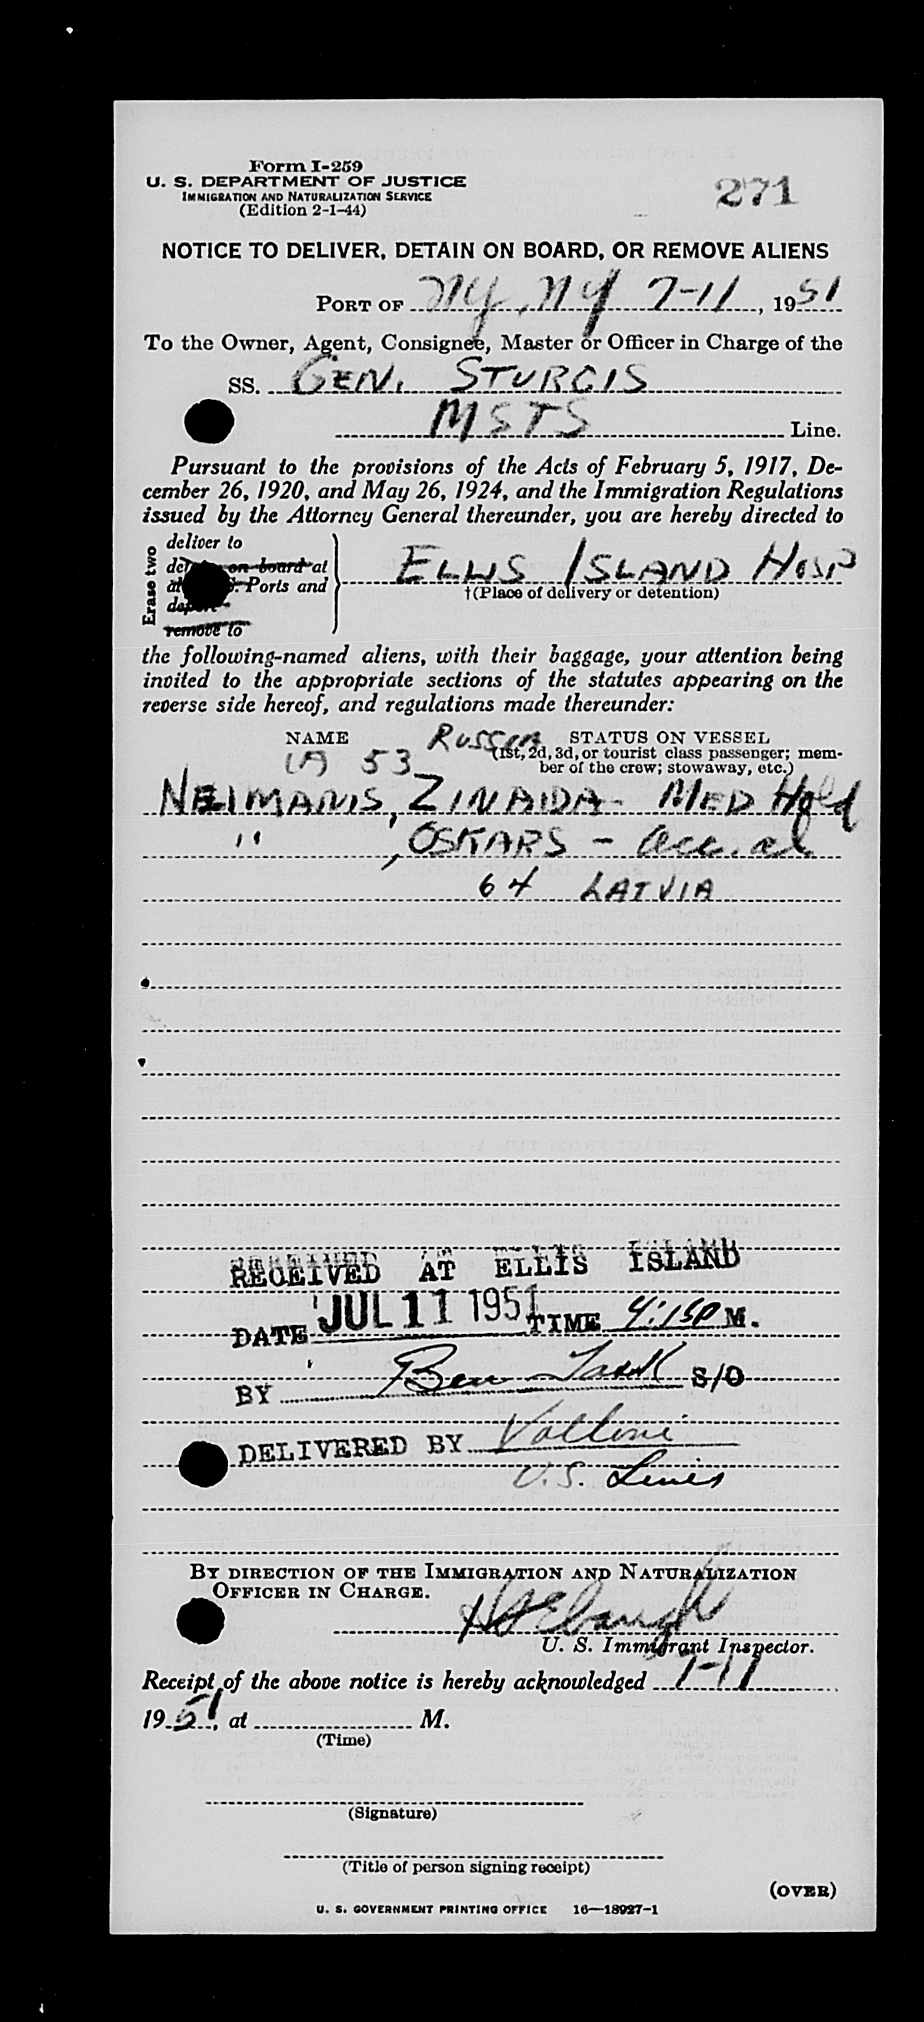 Form I-259
U. S. DEPARTMENT OF JUSTICE
IMMIGRATION AND NATURALIZATION SERVICE
(Edition 2-1-44)
271
NOTICE TO DELIVER, DETAIN ON BOARD, OR REMOVE ALIENS
PORT OF NY, NY 7-11, 1951
To the Owner, Agent, Consignee, Master or Officer in Charge of the
SS. GEN. STURGIS
MSTS Line.
Pursuant to the provisions of the Acts of February 5, 1917, De-
cember 26, 1920, and May 26, 1924, and the Immigration Regulations
issued by the Attorney General thereunder, you are hereby directed to
Erase two
deliver to
on board at
Ports and
remove to
ELLIS ISLAND HOSP
†(Place of delivery or detention)
the following-named aliens, with their baggage, your attention being
invited to the appropriate sections of the statutes appearing on the
reverse side hereof, and regulations made thereunder:
NAME STATUS ON VESSEL
53 Russia (1st, 2d, 3d, or tourist class passenger; mem-
ber of the crew; stowaway, etc.)
NEIMANIS, ZINAIDA - MED Hold
" , OSKARS - acc. al
64 LATVIA
RECEIVED AT ELLIS ISLAND
DATE JUL 11 1951 TIME 4:15P M.
BY Ben S/O
DELIVERED BY
U.S. Lines
BY DIRECTION OF THE IMMIGRATION AND NATURALIZATION
OFFICER IN CHARGE.
U. S. Immigrant Inspector.
Receipt of the above notice is hereby acknowledged 7-11
1951, at M.
(Time)
(Signature)
(Title of person signing receipt)
(OVER)
U. S. GOVERNMENT PRINTING OFFICE 16—18927-1